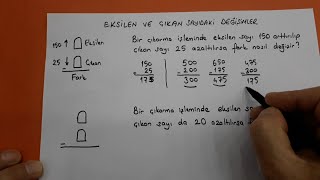 EKSİLEN VE ÇIKAN SAYIDAKİ DEĞİŞİMLER
150 ↑ Eksilen
25 ↓ Çıkan
Fark
Bir çıkarma işleminde eksilen sayı 150 arttırılıp
çıkan sayı 25 azaltılırsa fark nasıl değişir?
150 500 650 475
25 - 200 - 175 - 300
175 300 475 175
Bir çıkarma işleminde eksilen
çıkan sayı da 20 azaltılırsa